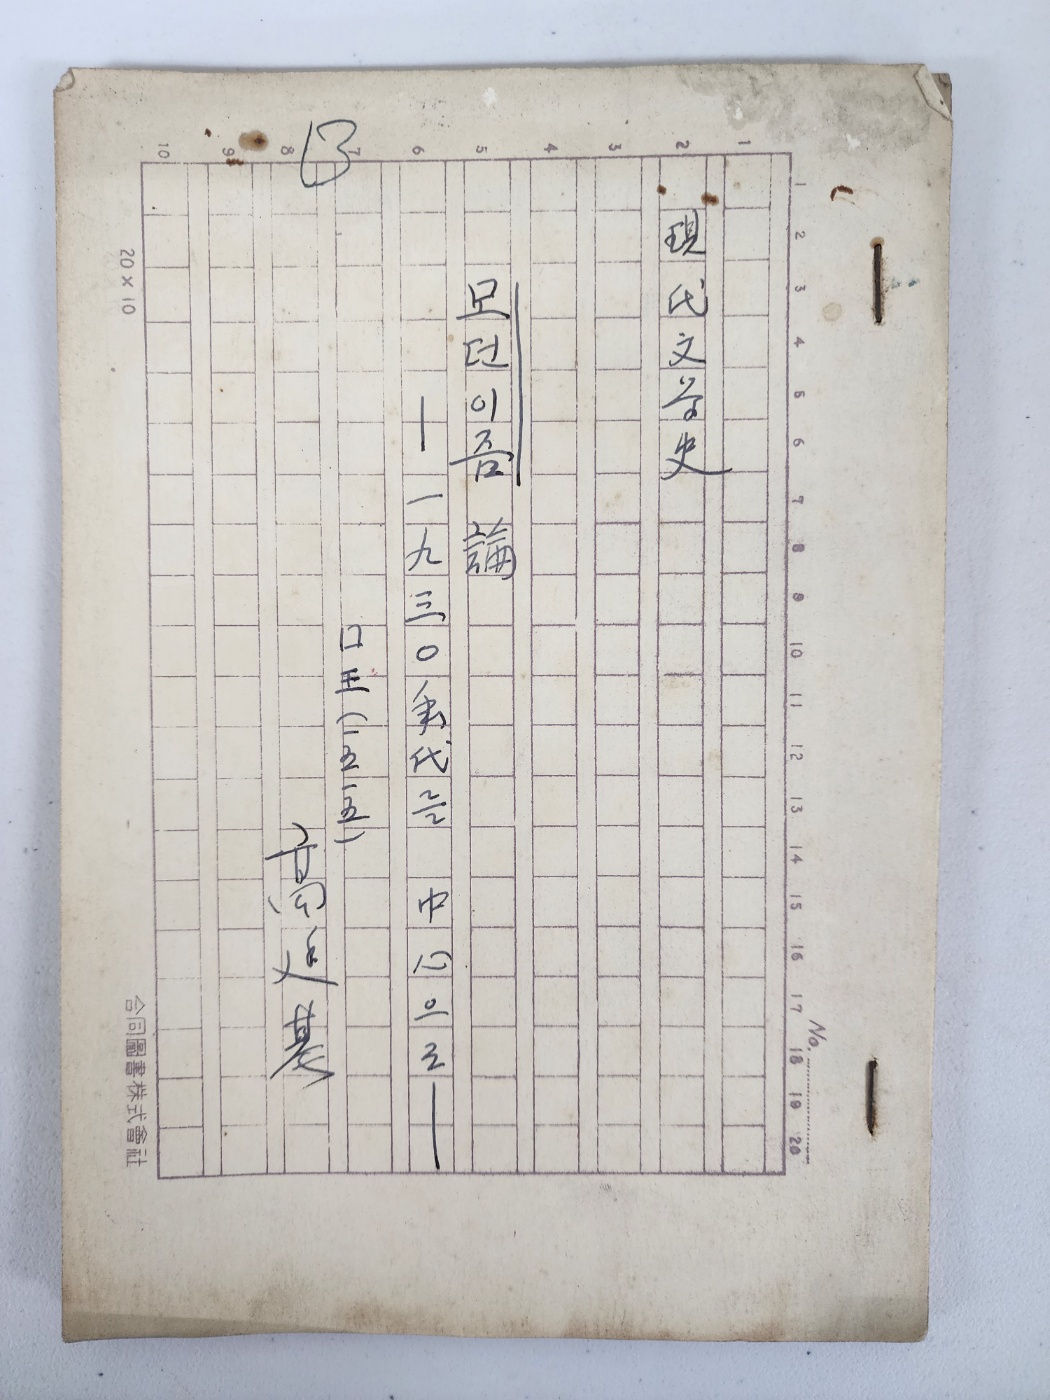 No.
1 2 3 4 5 6 7 8 9 10 11 12 13 14 15 16 17 18 19 20
1 2 3 4 5 6 7 8 9 10
現代文学史
모던이즘 論
— 一九三〇年代를 中心으로 —
20×10
合同圖書株式會社